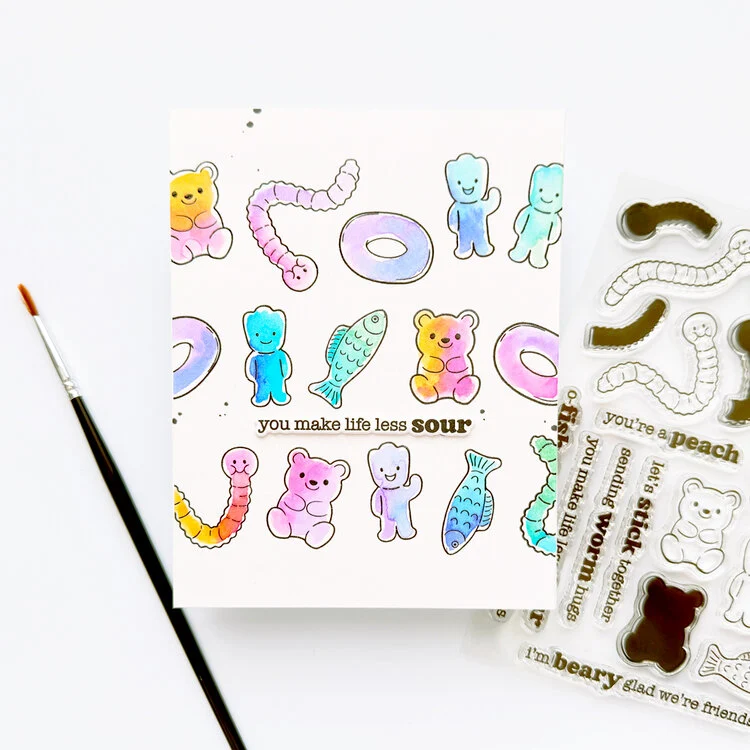 you make life less sour
you're a peach
o-fish
you make life le
sending worm hugs
let's stick together
i'm beary glad we're friends